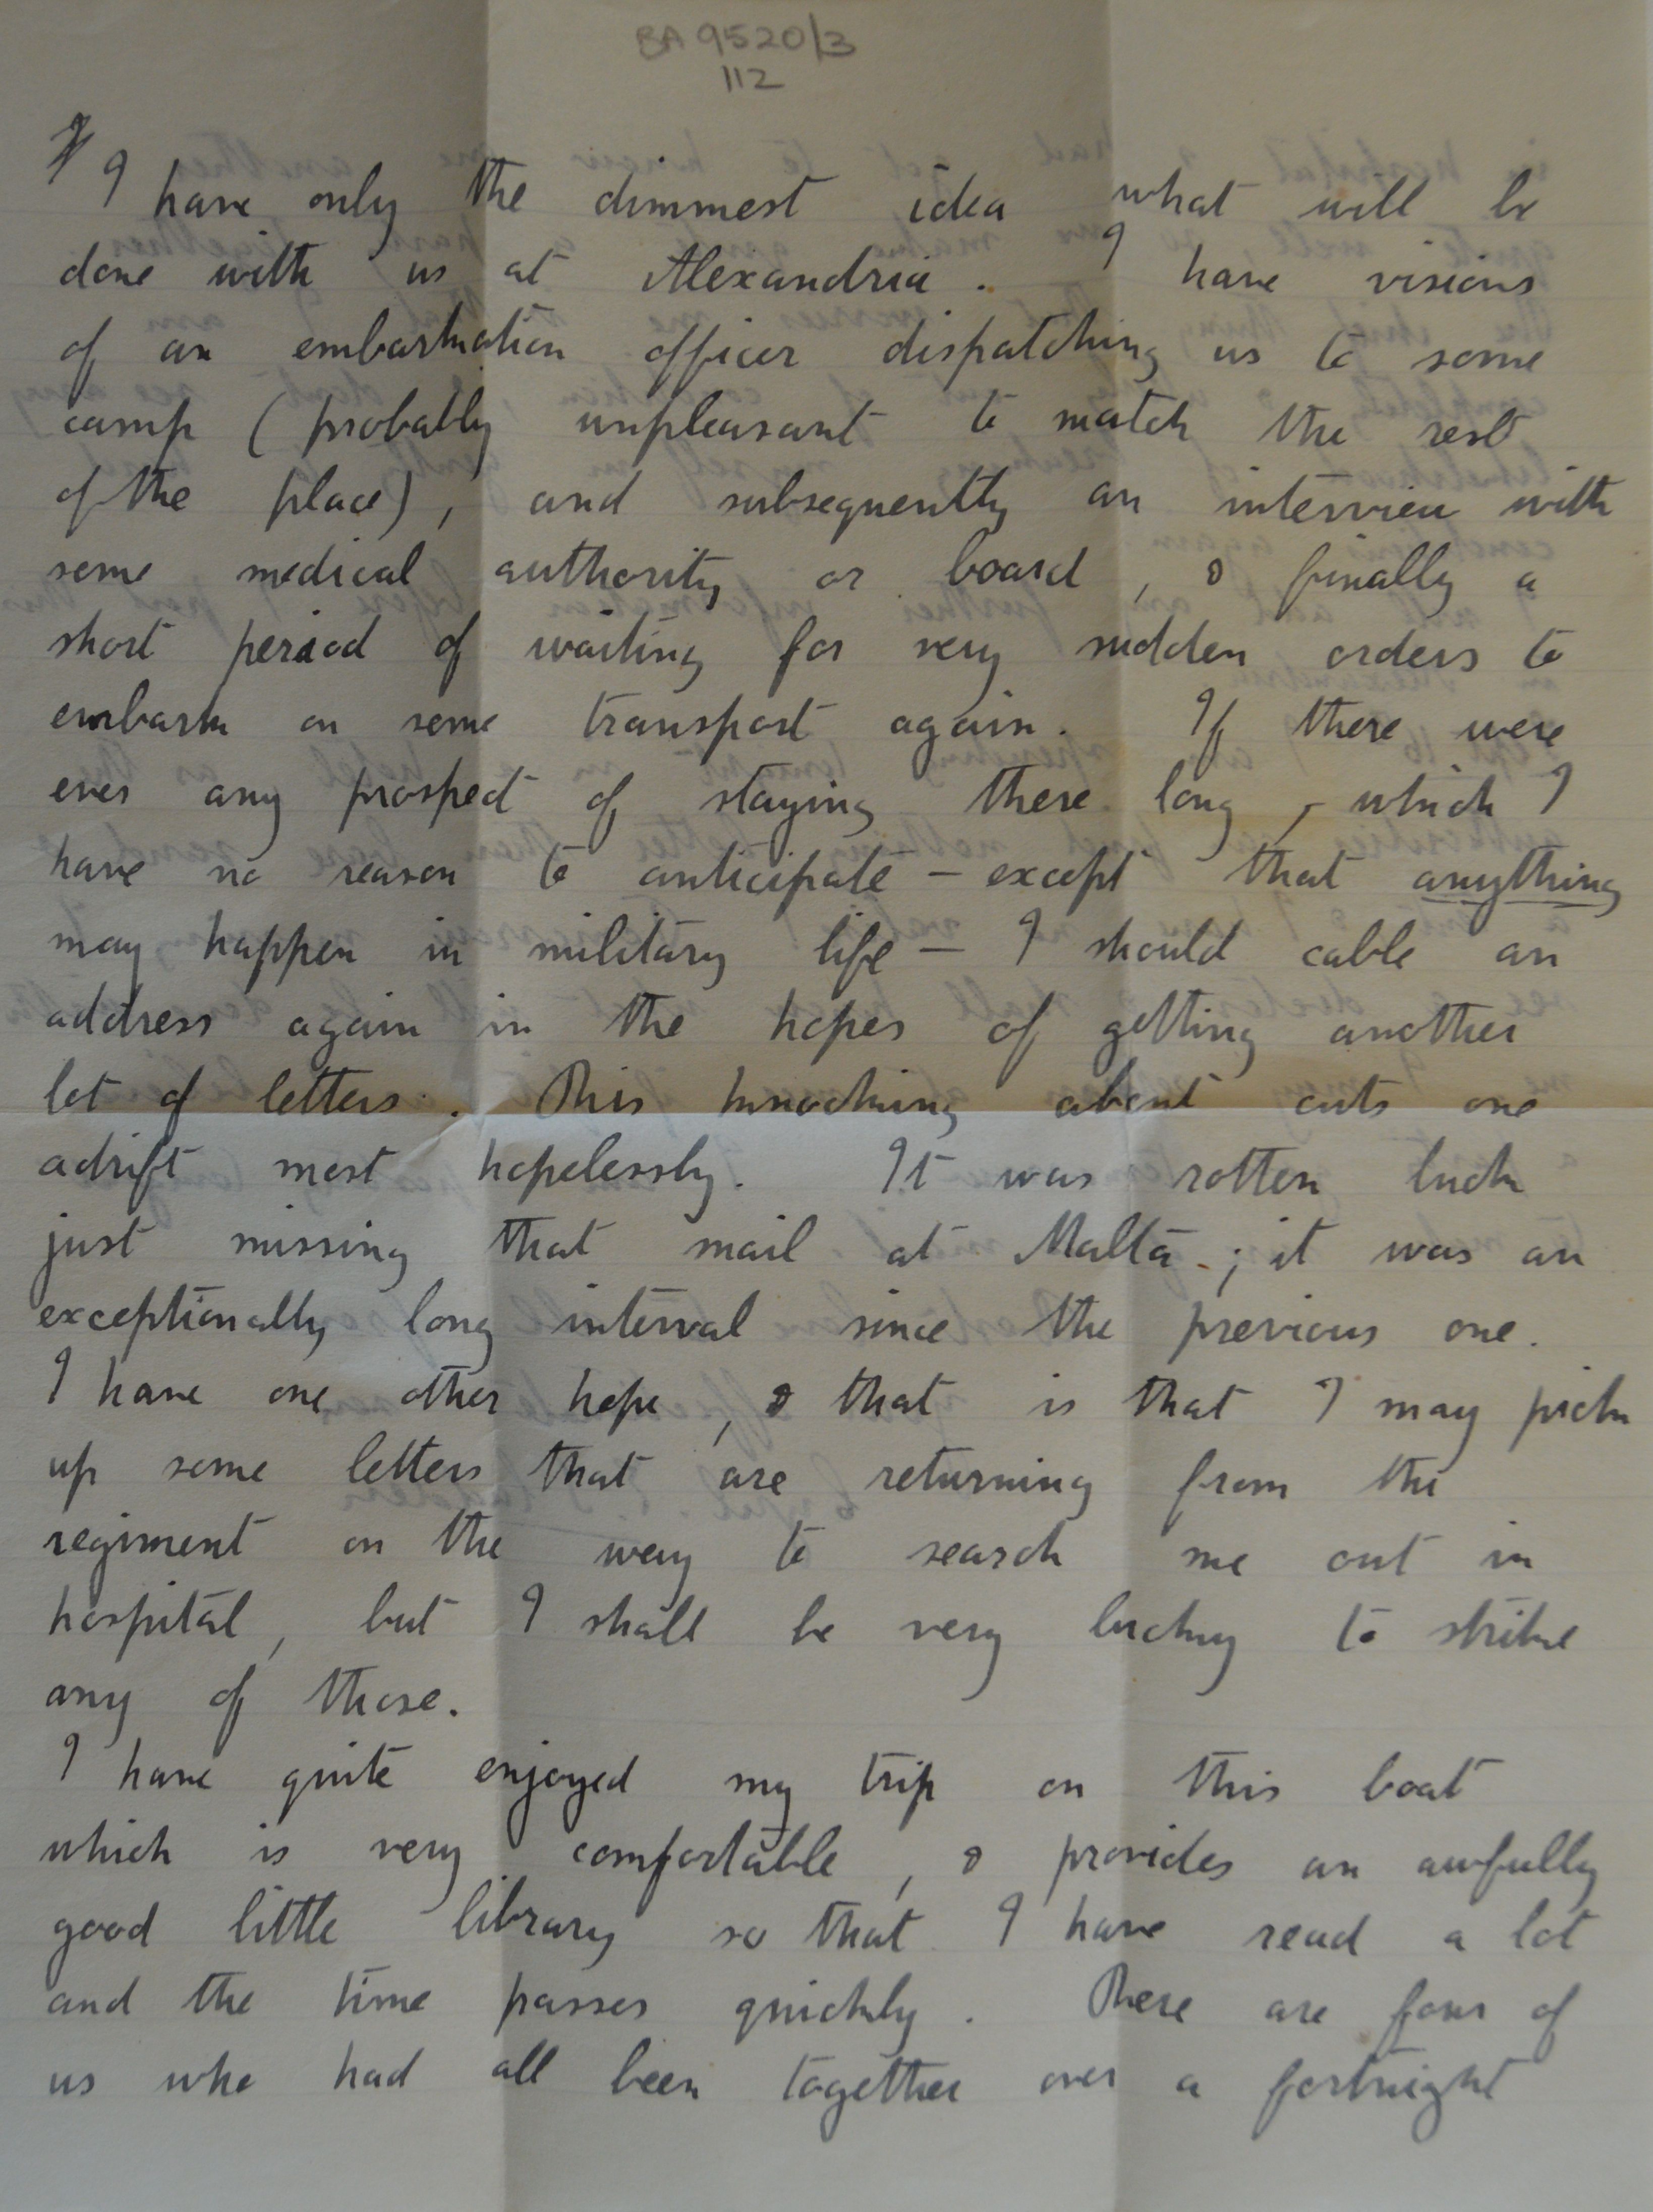 BA 9520/3
112
I have only the dimmest idea what will be
done with us at Alexandria. I have visions
of an embarkation officer dispatching us to some
camp (probably unpleasant to match the rest
of the place), and subsequently an interview with
some medical authority or board, & finally a
short period of waiting for very sudden orders to
embark on some transport again. If there were
ever any prospect of staying there long, - which I
have no reason to anticipate - except that anything
may happen in military life - I should cable an
address again in the hopes of getting another
lot of letters. This knocking about cuts one
adrift most hopelessly. It was rotten luck
just missing that mail at Malta; it was an
exceptionally long interval since the previous one.
I have one other hope, & that is that I may pick
up some letters that are returning from the
regiment on the way to search me out in
hospital, but I shall be very lucky to strike
any of those.
I have quite enjoyed my trip on this boat
which is very comfortable, & provides an awfully
good little library so that I have read a lot
and the time passes quickly. There are four of
us who had all been together over a fortnight